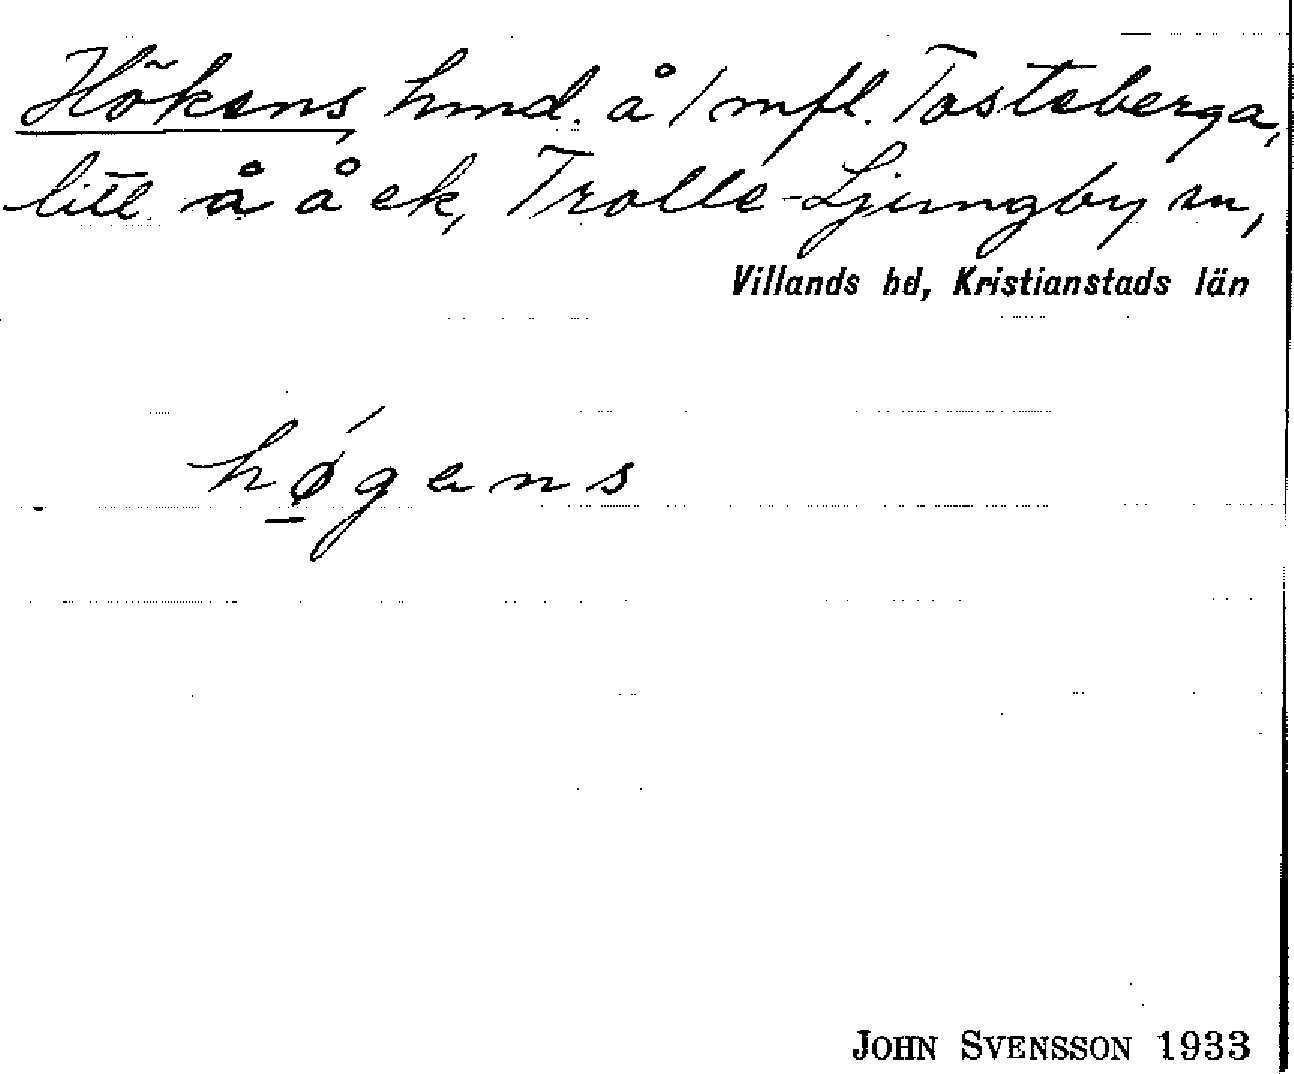 Hökens, hmd. å 1 mfl. Tosteberga,
litt. å å ek, Trolle-Ljungby sn,
Villands hd, Kristianstads län
hǿ̠gens
JOHN SVENSSON 1933